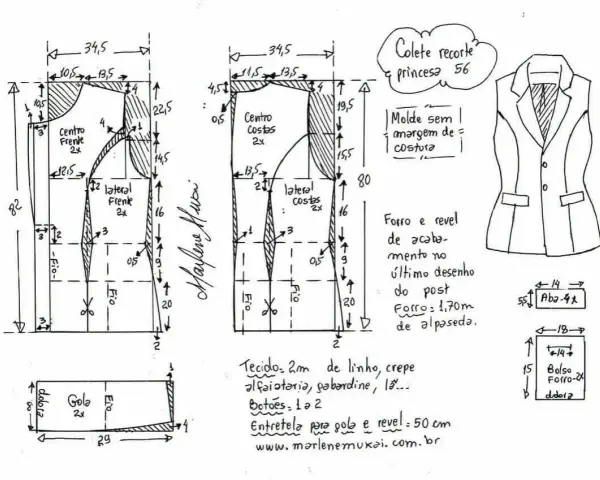 34,5
10,5
13,5
4
1
10,5
3
22,5
Centro
Frente
2x
4
1
14,5
12,5
2
lateral
Frente
2x
16
82
3
2
3
0,5
9
Fio
Fio
20
2
34,5
11,5
13,5
4,5
4
0,5
Centro
Costas
2x
19,5
15,5
13,5
2
lateral
costas
2x
16
80
1
3
0,5
9
Fio
Fio
20
2
Marlene Mukai
Colete recorte
princesa 56
Molde sem
margem de
costura
Forro e revel
de acaba-
mento no
último desenho
do post
Forro = 1,70m
de alpaseda.
14
5,5
Aba-4x
18
14
15
Bolso
Forro-2x
dobra
1
8
dobra
Gola
2x
Fio
4
29
Tecido = 2m de linho, crepe
alfaiataria, gabardine, lã...
Botões = 1 a 2
Entretela para gola e revel = 50 cm
www.marlenemukai.com.br